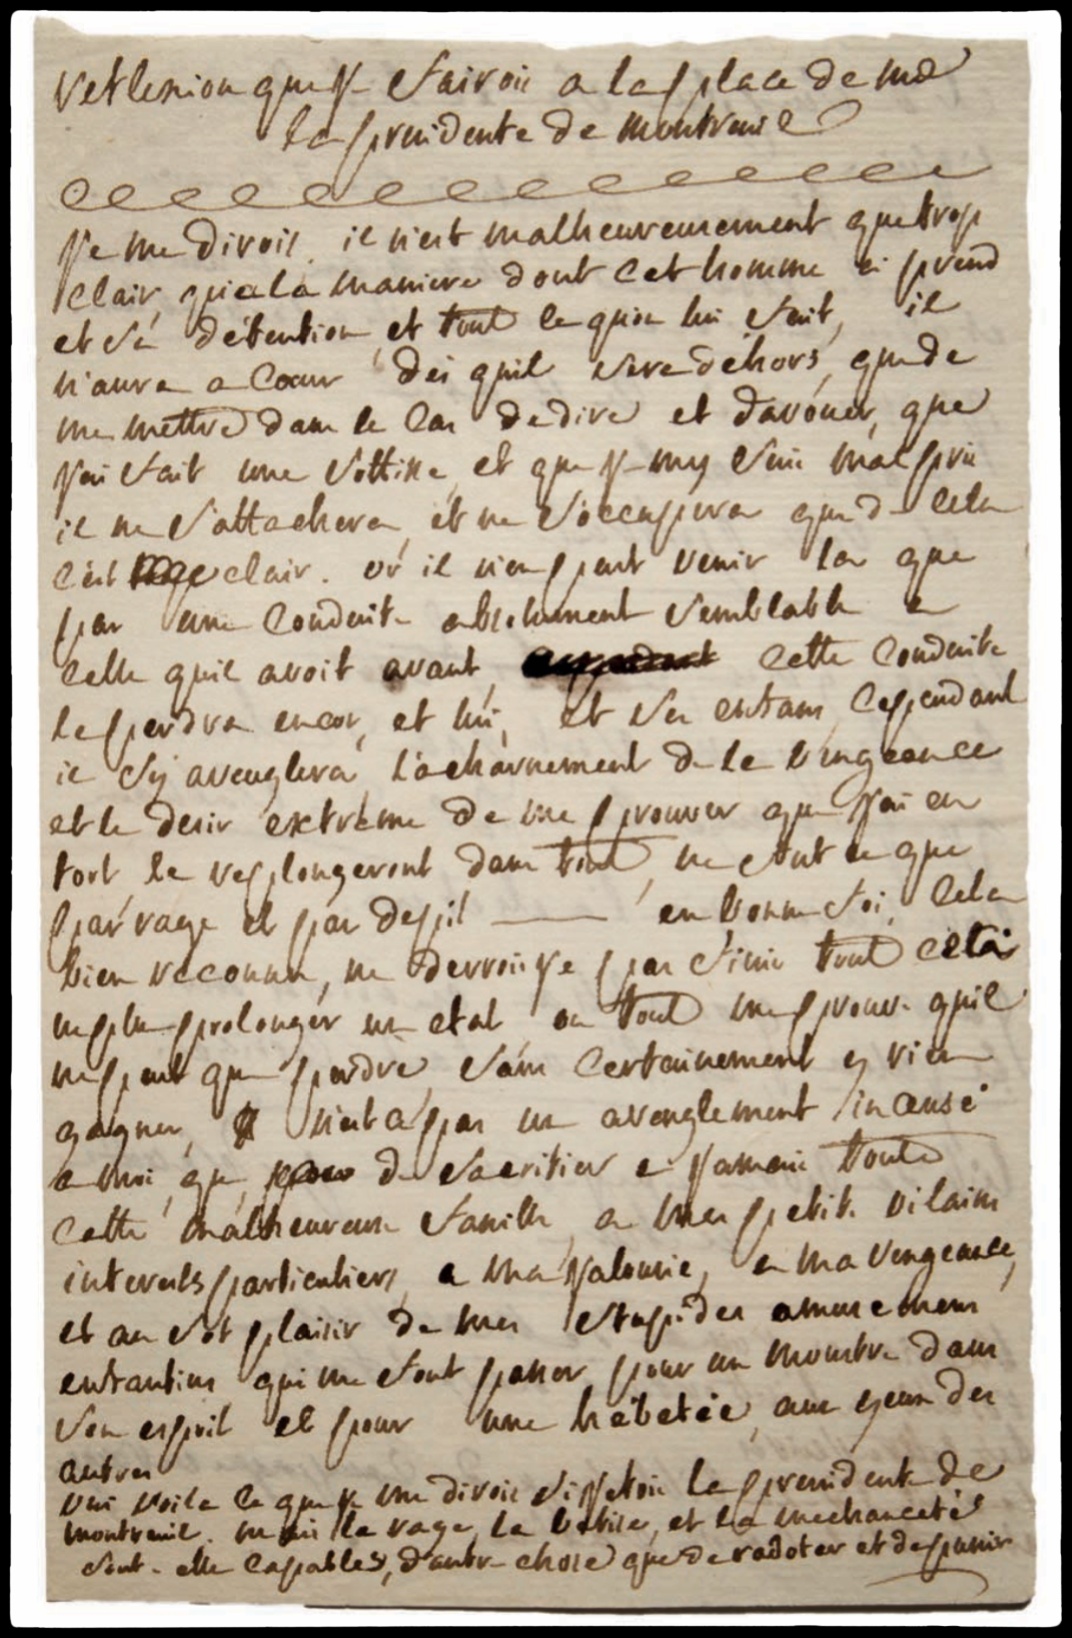 reflexion que je fairois a la place de md
la presidente de montreuil
je me dirois. il n'est malheureusement que trop
clair, qu'a la maniere dont cet homme si prend
et sa détention, et tout ce qu'on lui fait, il
n'aura a coeur des quil sera déhors, que de
me mettre dans le cas de dire et d'avouer, que
j'ai fait une sottise, et que je my suis mal pris
il ne s'attachera, et ne s'occupera que de cela
c'est clair. or il n'en peut venir la que
par une conduite absolument semblable a
celle quil avoit avant, cette conduite
le perdra encor, et lui, et ses enfans, cependant
il s'y aveuglera, l'acharnement de la vengeance
et le desir extrême de me prouver que j'ai eu
tort le replongeront dans tout, ne fut ce que
par rage et par depit —— en bonne foi, cela
bien reconnu, ne devrois je pas finir tout cela
ne plus prolonger un etat ou tout me prouve quil
ne peut que perdre, sans certainement y rien
gagner, n'est ce pas un aveuglement insensé
a moi, que de sacrifier a jamais toute
cette malheureuse famille, a mes petits vilains
interests particuliers, a ma jalousie, a ma vengeance,
et au sot plaisir de mes stupides amusemens
enfantins qui me font passer pour un monstre dans
son esprit et pour une hébétée, aux yeux des
autres
oui voila ce que je me dirois si j'etois la presidente de
montreuil. mais la rage, la betise, et la mechanceté
sont-elle capables, d'autre chose que de radoter et de punir